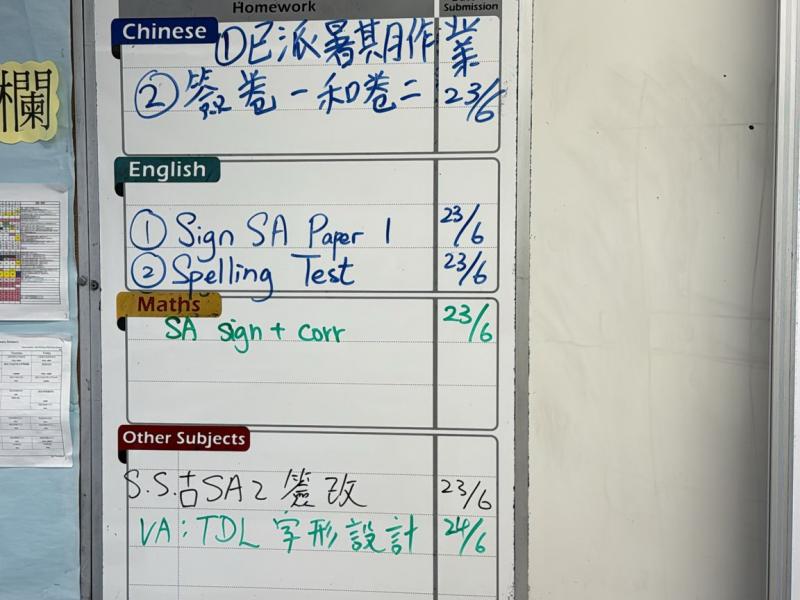 Homework
Submission
Chinese
①已派暑期作業
②簽卷一和卷二 23/6
English
① Sign SA Paper 1 23/6
② Spelling Test 23/6
Maths
SA sign + corr 23/6
Other Subjects
S.S. SA2 簽改 23/6
VA: TDL 字形設計 24/6
欄